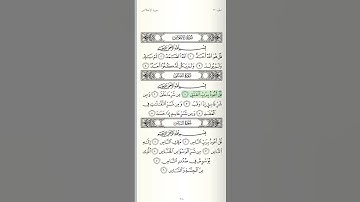 سورة الإخلاص
سُورَةُ الإِخْلَاصِ
بِسْمِ اللَّهِ الرَّحْمَٰنِ الرَّحِيمِ
قُلْ هُوَ اللَّهُ أَحَدٌ ١ اللَّهُ الصَّمَدُ ٢ لَمْ يَلِدْ
وَلَمْ يُولَدْ ٣ وَلَمْ يَكُن لَّهُ كُفُوًا أَحَدٌ ٤
سُورَةُ الفَلَقِ
بِسْمِ اللَّهِ الرَّحْمَٰنِ الرَّحِيمِ
قُلْ أَعُوذُ بِرَبِّ الْفَلَقِ ١ مِن شَرِّ مَا خَلَقَ ٢ وَمِن
شَرِّ غَاسِقٍ إِذَا وَقَبَ ٣ وَمِن شَرِّ النَّفَّاثَاتِ فِي
الْعُقَدِ ٤ وَمِن شَرِّ حَاسِدٍ إِذَا حَسَدَ ٥
سُورَةُ النَّاسِ
بِسْمِ اللَّهِ الرَّحْمَٰنِ الرَّحِيمِ
قُلْ أَعُوذُ بِرَبِّ النَّاسِ ١ مَلِكِ النَّاسِ ٢ إِلَٰهِ
النَّاسِ ٣ مِن شَرِّ الْوَسْوَاسِ الْخَنَّاسِ ٤ الَّذِي
يُوَسْوِسُ فِي صُدُورِ النَّاسِ ٥
مِنَ الْجِنَّةِ وَالنَّاسِ ٦